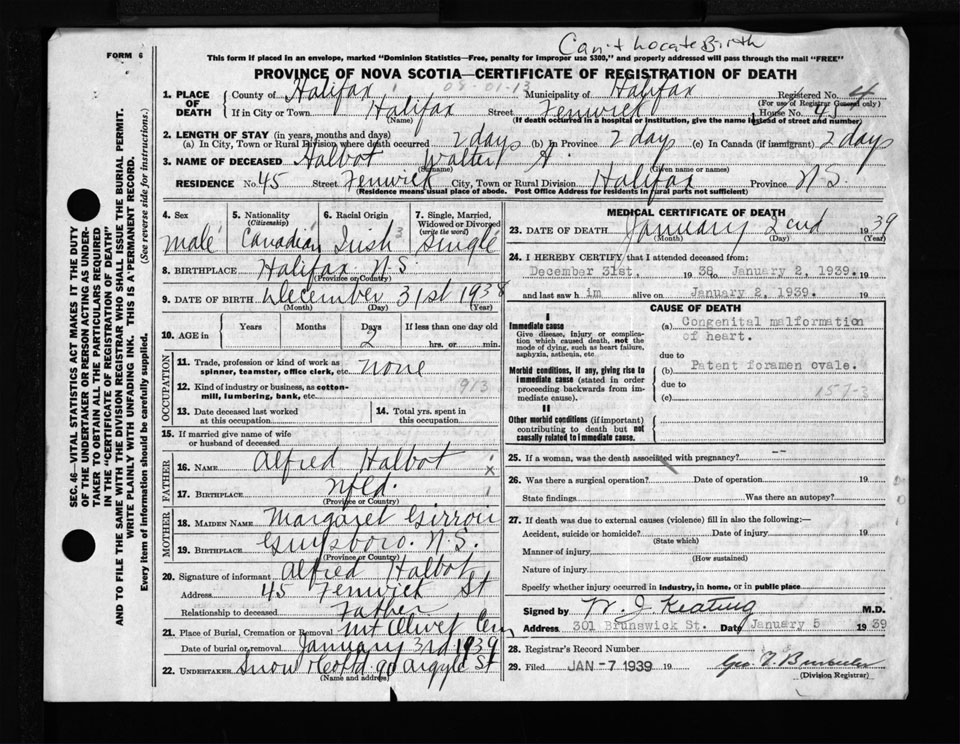 Can't Locate Birth
FORM 6
This form if placed in an envelope, marked "Dominion Statistics—Free, penalty for improper use $300," and properly addressed will pass through the mail "FREE"
PROVINCE OF NOVA SCOTIA—CERTIFICATE OF REGISTRATION OF DEATH
SEC. 46—VITAL STATISTICS ACT MAKES IT THE DUTY
OF THE UNDERTAKER OR PERSON ACTING AS UNDER-
TAKER TO OBTAIN ALL THE PARTICULARS REQUIRED
IN THE "CERTIFICATE OF REGISTRATION OF DEATH"
AND TO FILE THE SAME WITH THE DIVISION REGISTRAR WHO SHALL ISSUE THE BURIAL PERMIT.
WRITE PLAINLY WITH UNFADING INK. THIS IS A PERMANENT RECORD.
Every item of information should be carefully supplied. (See reverse side for instructions.)
1. PLACE OF DEATH
County of Halifax Municipality of Halifax Registered No. 4
(For use of Registrar General only)
If in City or Town Halifax Street Fenwick House No. 45
(Name) (If death occurred in a hospital or institution, give the name instead of street and number)
2. LENGTH OF STAY (in years, months and days)
(a) In City, Town or Rural Division where death occurred 2 days (b) In Province 2 days (c) In Canada (if immigrant) 2 days
3. NAME OF DECEASED Halbot Walter A.
(Surname) (Given name or names)
RESIDENCE No. 45 Street Fenwick City, Town or Rural Division Halifax Province N.S.
(Residence means usual place of abode. Post Office Address for residents in rural parts not sufficient)
4. Sex male
5. Nationality (Citizenship) Canadian
6. Racial Origin Irish 3
7. Single, Married, Widowed or Divorced (write the word) single
8. BIRTHPLACE Halifax N.S.
(Province or Country)
9. DATE OF BIRTH December 31st 1938
(Month) (Day) (Year)
10. AGE in Years Months Days If less than one day old
2 hrs. or min.
OCCUPATION
11. Trade, profession or kind of work as
spinner, teamster, office clerk, etc. none
12. Kind of industry or business, as cotton-
mill, lumbering, bank, etc. 913
13. Date deceased last worked
at this occupation
14. Total yrs. spent in
this occupation
15. If married give name of wife
or husband of deceased
FATHER
16. NAME Alfred Halbot
17. BIRTHPLACE Nfld.
(Province or Country)
MOTHER
18. MAIDEN NAME Margaret Girroir
19. BIRTHPLACE Guysboro. N.S.
(Province or Country)
20. Signature of informant Alfred Halbot
Address 45 Fenwick St
Relationship to deceased Father
21. Place of Burial, Cremation or Removal Mt Olivet Cem
Date of burial or removal January 3rd 1939
22. UNDERTAKER Snow & Co Ltd. 90 Argyle St
(Name and address)
MEDICAL CERTIFICATE OF DEATH
23. DATE OF DEATH January 2cnd 1939
(Month) (Day) (Year)
24. I HEREBY CERTIFY that I attended deceased from:
December 31st. 1938 to January 2, 1939.
and last saw h im alive on January 2, 1939.
CAUSE OF DEATH
I
Immediate cause
Give disease, injury or complica-
tion which caused death, not the
mode of dying, such as heart failure,
asphyxia, asthenia, etc
(a) Congenital malformation
of heart.
due to
Morbid conditions, if any, giving rise to
immediate cause (stated in order
proceeding backwards from im-
mediate cause).
(b) Patent foramen ovale.
due to
(c) 157-3
II
Other morbid conditions (if important)
contributing to death but not
causally related to immediate cause.
25. If a woman, was the death associated with pregnancy?
26. Was there a surgical operation? Date of operation 19
State findings Was there an autopsy?
27. If death was due to external causes (violence) fill in also the following:—
Accident, suicide or homicide? Date of injury 19
(State which)
Manner of injury
(How sustained)
Nature of injury
Specify whether injury occurred in industry, in home, or in public place
Signed by W. J. Keating M.D.
Address 301 Brunswick St. Date January 5 1939
28. Registrar's Record Number
29. Filed JAN -7 1939 19
(Division Registrar)